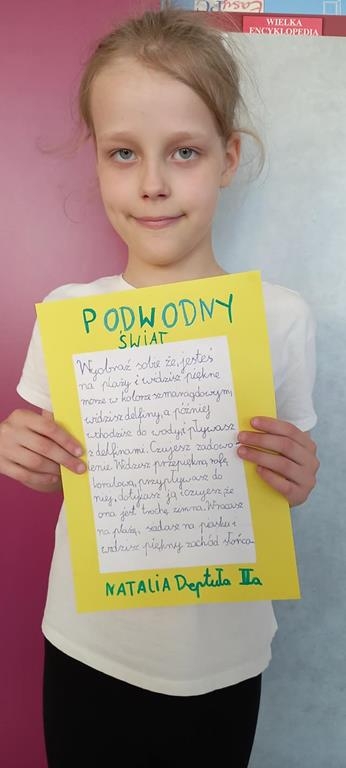 EasyPC
WIELKA
ENCYKLOPEDIA
PODWODNY
ŚWIAT
Wyobraź sobie że, jesteś
na plaży i widzisz piękne
morze w kolorze szmaragdowym,
widzisz delfiny, a później
wchodzisz do wody i pływasz
z delfinami. Czujesz zadowo-
lenie. Widzisz przepiękną rafę
koralową, przypływasz do
niej, dotykasz ją i czujesz że
ona jest trochę zimna. Wracasz
na plażę, siadasz na piasku i
widzisz piękny zachód słońca.
NATALIA Deptuła IIIa